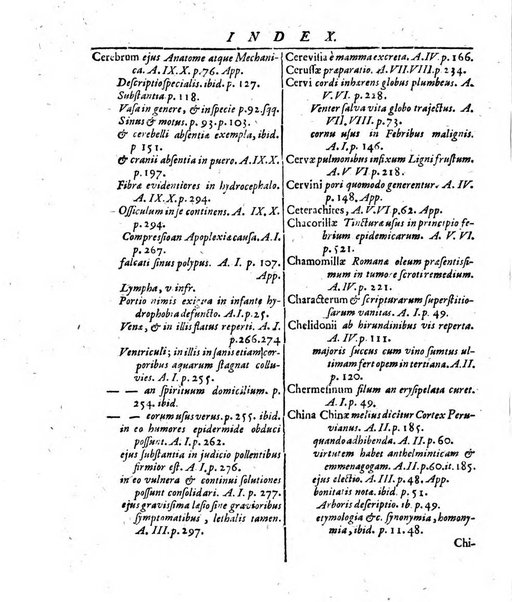 INDEX.
Cerebrum ejus Anatome atque Mechani-
ca. A. IX. X. p. 76. App.
Descriptio specialis. ibid. p. 127.
Substantia p. 118.
Vasa in genere, & in specie p. 92. sqq.
Sinus & motus. p. 93. p. 103.
& cerebelli absentia exempla, ibid.
p 151.
& cranii absentia in puero. A. IX. X.
p. 197.
Fibræ evidentiores in hydrocephalo.
A. IX. X. p. 294.
Officulum in se continens. A. IX. X.
p. 294.
Compressio an Apoplexiæ causa. A. I.
p. 267.
falcati sinus polypus. A. I. p. 107.
App.
Lympha, v infr.
Portio nimis exigua in infante hy-
drophoba defuncto. A. I. p. 25.
Venæ, & in illis flatus reperti. A. I.
p. 266. 274
Ventriculi; in illis in sanis etiam cor-
poribus aquarum stagnat collu-
vies. A. I. p. 255.
— — an spirituum domicilium. p.
254. ibid.
— — eorum usus verus. p. 255. ibid.
in eo humores epidermide obduci
possunt. A. I. p. 262.
ejus substantia in judicio pollentibus
firmior est. A. I. p. 276.
in eo vulnera & continui solutiones
possunt consolidari. A. I. p. 277.
ejus gravissima læsio sine gravioribus
symptomatibus, lethalis tamen.
A. III. p. 297.
Cerevisia è mamma excreta. A. IV. p. 166.
Cerussæ præparatio. A. VII. VIII. p 234.
Cervi cordi inhærens globus plumbeus. A.
V. VI. p. 218.
Venter salva vita globo trajectus. A.
VII. VIII. p. 73.
cornu usus in Febribus malignis.
A. I. p. 146.
Cervæ pulmonibus infixum Ligni frustum.
A. V. VI p. 218.
Cervini pori quomodo generentur. A. IV.
p. 148. App.
Ceterachites, A. V. VI. p. 62. App.
Chacorillæ Tincturæ usus in principio fe-
brium epidemicarum. A. V. VI.
p. 521.
Chamomillæ Romanæ oleum præsentissi-
mum in tumore scroti remedium.
A. IV. p. 221.
Characterum & scripturarum superstitio-
sarum vanitas. A. I. p. 49.
Chelidonii ab hirundinibus vis reperta.
A. IV. p. 111.
majoris succus cum vino sumtus ul-
timam fert opem in tertiana. A. II.
p. 120.
Chermesinum filum an erysipelata curet.
A. I. p. 49.
China Chinæ melius dicitur Cortex Peru-
vianus. A. II. p. 185.
quando adhibenda. A. II. p. 60.
virtutem habet anthelminticam &
emmenagogam. A. II. p. 60. it. 185.
ejus electio. A. III. p. 48. App.
bonitatis nota. ibid. p. 51.
Arboris descriptio. ib. p. 49.
etymologia &c. synonymia, homony-
mia, ibid. p. 11. 48.
Chi-